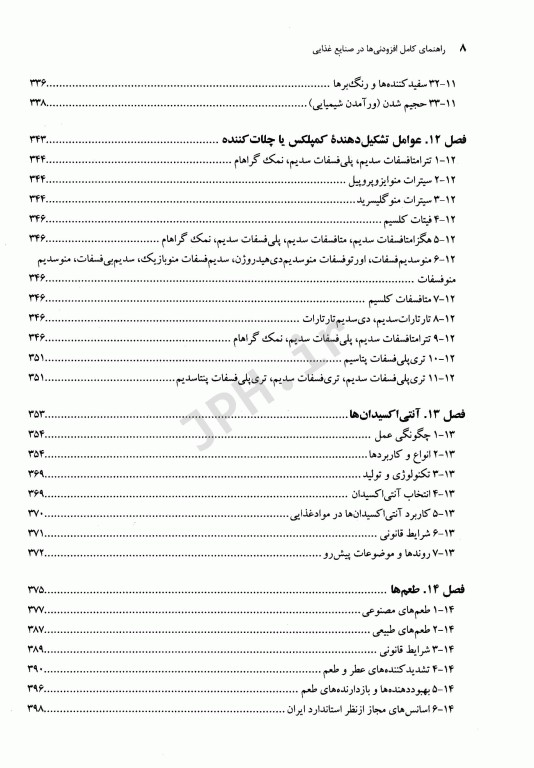 ۸ راهنمای کامل افزودنی‌ها در صنایع غذایی
۱۱-۳۲ سفیدکننده‌ها و رنگ‌برها ۳۳۶
۱۱-۳۳ حجیم شدن (ورآمدن شیمیایی) ۳۳۸
فصل ۱۲. عوامل تشکیل‌دهندهٔ کمپلکس یا چلات‌کننده ۳۴۳
۱۲-۱ تترامتافسفات سدیم، پلی‌فسفات سدیم، نمک گراهام ۳۴۴
۱۲-۲ سیترات منوایزوپروپیل ۳۴۴
۱۲-۳ سیترات منوگلیسرید ۳۴۴
۱۲-۴ فیتات کلسیم ۳۴۶
۱۲-۵ هگزامتافسفات سدیم، متافسفات سدیم، پلی‌فسفات سدیم، نمک گراهام ۳۴۶
۱۲-۶ منوسدیم‌فسفات، اورتوفسفات منوسدیم‌دی‌هیدروژن، سدیم‌فسفات منوبازیک، سدیم‌بی‌فسفات، منوسدیم
منوفسفات ۳۴۶
۱۲-۷ متافسفات کلسیم ۳۴۶
۱۲-۸ تارتارات‌سدیم، دی‌سدیم‌تارتارات ۳۴۶
۱۲-۹ تترامتافسفات سدیم، پلی‌فسفات سدیم، نمک گراهام ۳۴۶
۱۲-۱۰ تری‌پلی‌فسفات پتاسیم ۳۵۱
۱۲-۱۱ تری‌پلی‌فسفات سدیم، تری‌فسفات سدیم، تری‌پلی‌فسفات پنتاسدیم ۳۵۱
فصل ۱۳. آنتی‌اکسیدان‌ها ۳۵۳
۱۳-۱ چگونگی عمل ۳۵۴
۱۳-۲ انواع و کاربردها ۳۵۴
۱۳-۳ تکنولوژی و تولید ۳۶۹
۱۳-۴ انتخاب آنتی‌اکسیدان ۳۶۹
۱۳-۵ کاربرد آنتی‌اکسیدان‌ها در موادغذایی ۳۷۰
۱۳-۶ شرایط قانونی ۳۷۱
۱۳-۷ روندها و موضوعات پیش‌رو ۳۷۲
فصل ۱۴. طعم‌ها ۳۷۵
۱۴-۱ طعم‌های مصنوعی ۳۷۷
۱۴-۲ طعم‌های طبیعی ۳۸۷
۱۴-۳ شرایط قانونی ۳۸۹
۱۴-۴ تشدیدکننده‌های عطر و طعم ۳۹۰
۱۴-۵ بهبوددهنده‌ها و بازدارنده‌های طعم ۳۹۶
۱۴-۶ اسانس‌های مجاز ازنظر استاندارد ایران ۳۹۸
JPH.ir